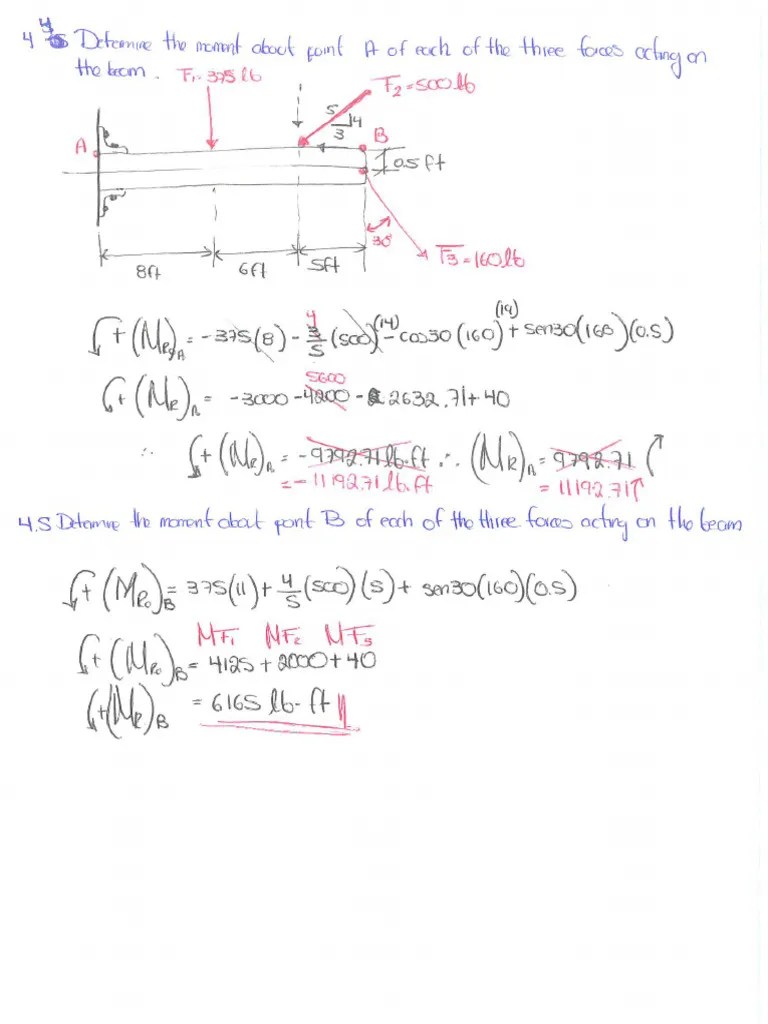 4 4 Determine the moment about point A of each of the three forces acting on
the beam. F1=375 lb
F2=500 lb
5
4
3
A
B
0.5 ft
30°
F3=160 lb
8ft 6ft 5ft
+(MR)A = -375(8) - 4 3/5 (500)(14) - cos30(160)(19) + sen30(160)(0.5)
+(MR)A = -3000 - 5600 4200 - 2632.71 + 40
∴ +(MR)A = -9792.71 lb.ft ∴ (MR)A = 9792.71
= -11192.71 lb.ft = 11192.71
4.5 Determine the moment about point B of each of the three forces acting on the beam
+(MRo)B = 375(11) + 4/5 (500)(5) + sen30(160)(0.5)
MF1 MF2 MF3
+(MRo)B = 4125 + 2000 + 40
+(MR)B = 6165 lb-ft